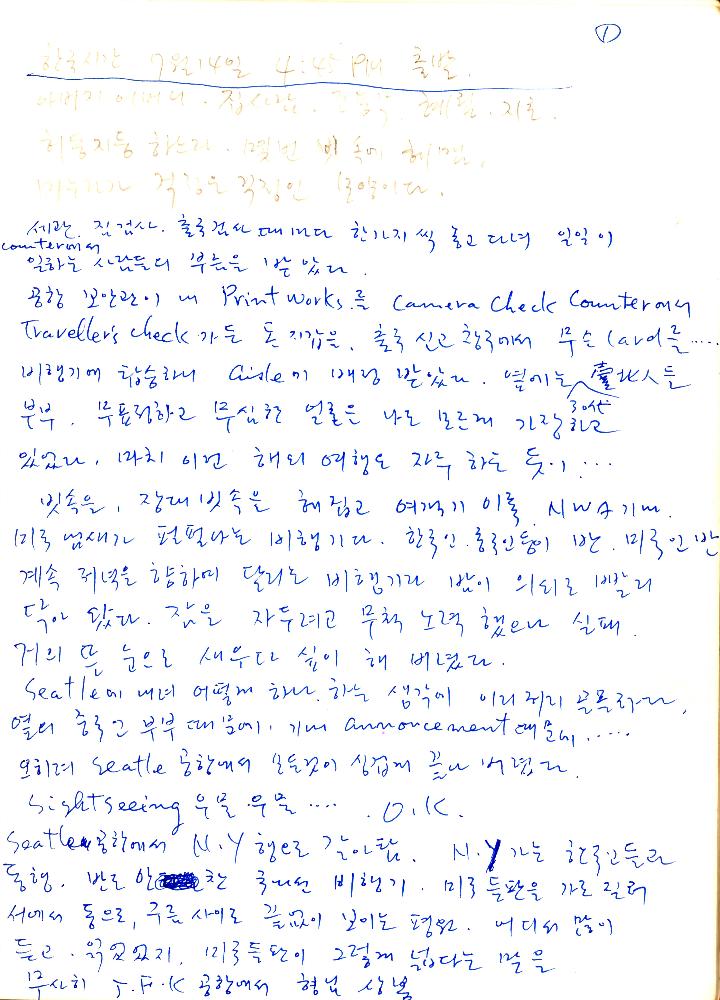 ①
한국시간 7월14일 4:45 PM 출발.
아버지 어머니. 집사람. 혜림. 지호.
허둥지둥 하느라. 빗속에
걱정은 걱정인 모양이다.
세관. 짐검사. 출국검사 때마다 한가지씩 놓고 다녀 일일이
counter에서
일하는 사람들의 부름을 받았다.
공항 보안관이 내 Print Works를 Camera Check Counter에서
Traveller's Check가 든 돈지갑을, 출국 신고 창구에서 무슨 Card를....
비행기에 탑승하니 aisle에 배정 받았다. 옆에는 臺北人들
30代
부부. 무표정하고 무심한 얼굴은 나도 모르게 가장하고
있었다. 마치 이런 해외 여행도 자주 하는 듯이...
빗속을, 장대빗속을 헤집고 여객기 이륙. NWA기내.
미국 냄새가 펄펄나는 비행기다. 한국인.중국인들이 반. 미국인 반
계속 저녁을 향하여 달리는 비행기라 밤이 의외로 빨리
닥아 왔다. 잠을 자두려고 무척 노력 했으나 실패.
거의 뜬 눈으로 새우다 싶이 해 버렸다.
Seatle에 내려 어떻게 하나. 하는 생각에 이리저리 골몰하다,
옆의 중국고 부부 때문에. 기내 annoncement 때문에.....
오히려 Seatle 공항에서 모든것이 싱겁게 끝나 버렸다.
Sightseeing 우물우물.... O.K.
Seatle 공항에서 N.Y 행으로 갈아탐. N.Y 가는 한국고들과
동행. 반도 안 찬 국내선 비행기. 미국 들판을 가로 질러
서에서 동으로, 구름 사이로 끝없이 보이는 평원. 어디서 많이
듣고. 읽었었지, 미국들판이 그렇게 넓다는 말을
무사히 J.F.K 공항에서 형님 상봉